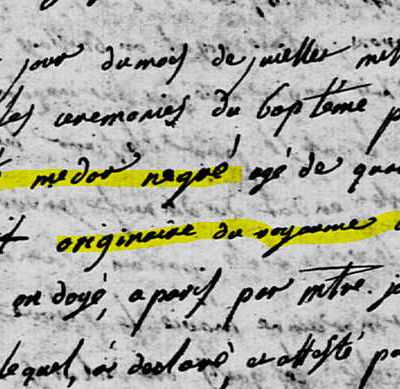 jour du mois de juillet mil
les ceremonies du baptême p
medor negre agé de qua
it originaire du royaume
ondoyé, a paris par mtre. j
lequel, a declaré et attesté pa